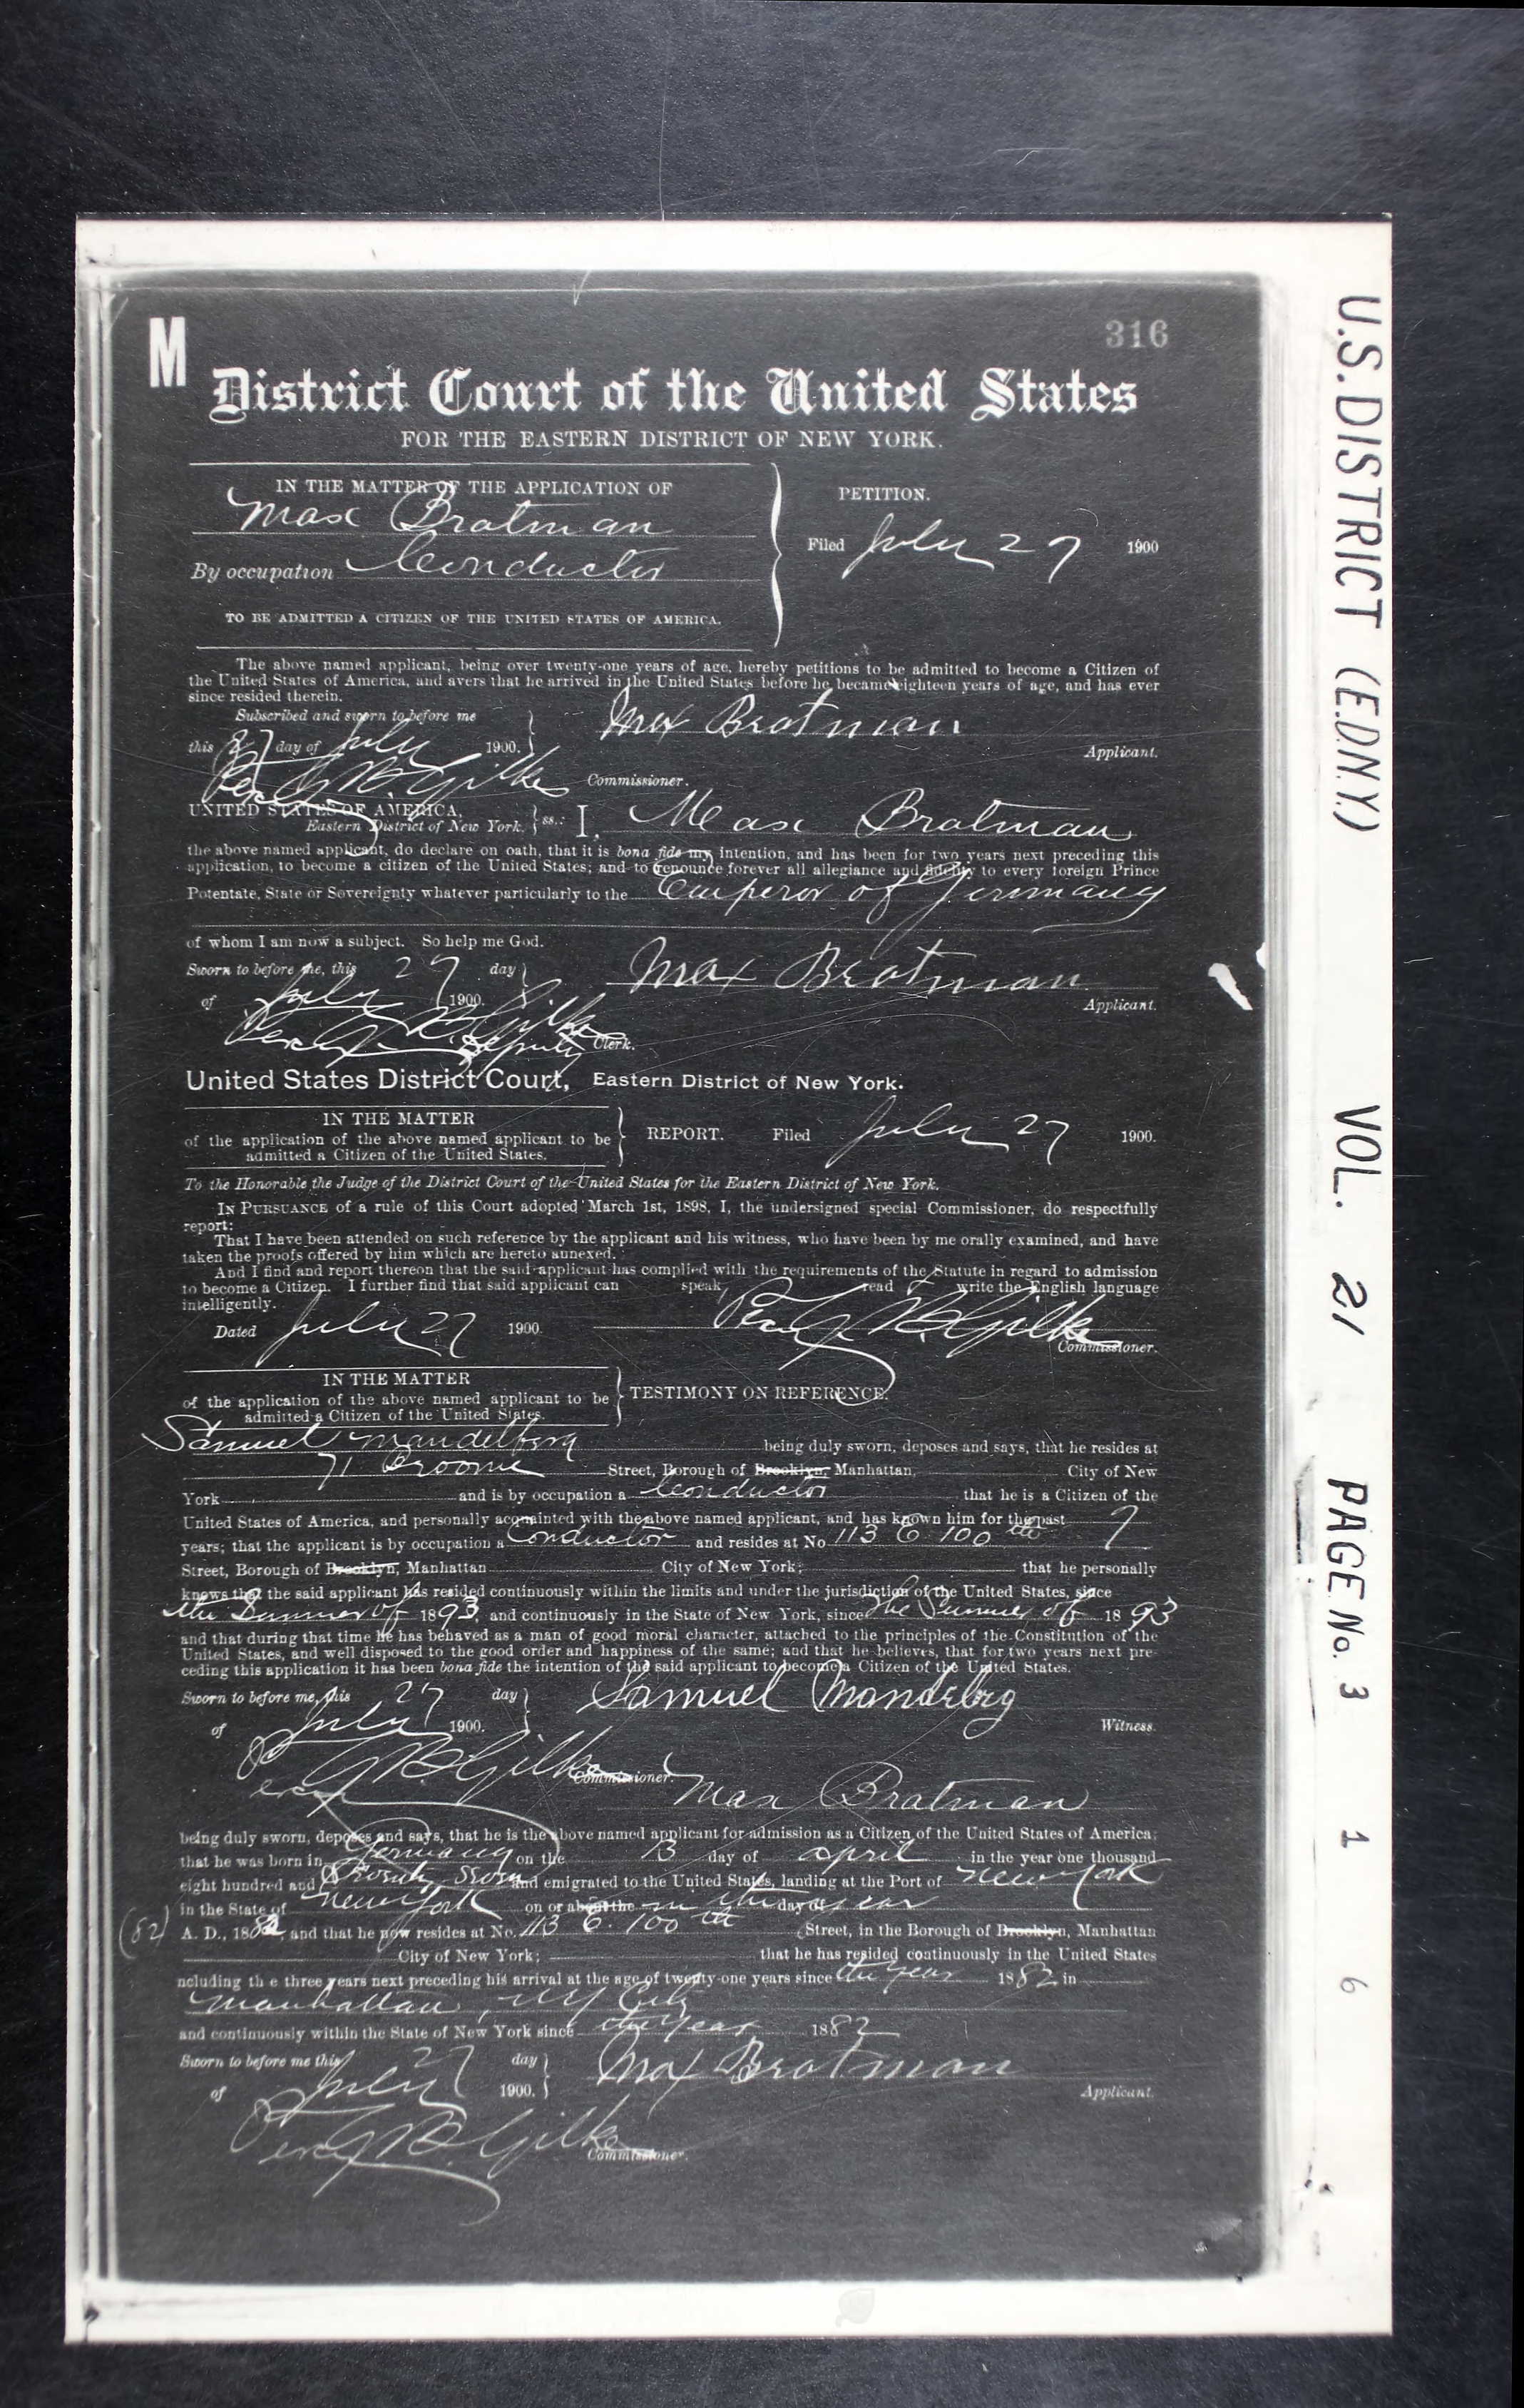 M
316
District Court of the United States
FOR THE EASTERN DISTRICT OF NEW YORK.
IN THE MATTER OF THE APPLICATION OF
Max Bratman
By occupation Conductor
TO BE ADMITTED A CITIZEN OF THE UNITED STATES OF AMERICA.
PETITION.
Filed July 27 1900
The above named applicant, being over twenty-one years of age, hereby petitions to be admitted to become a Citizen of
the United States of America, and avers that he arrived in the United States before he became eighteen years of age, and has ever
since resided therein.
Subscribed and sworn to before me
this 27 day of July 1900.
Max Bratman
Applicant.
Percy G. B. Gilkes Commissioner.
UNITED STATES OF AMERICA,
Eastern District of New York. ss.: I, Max Bratman
the above named applicant, do declare on oath, that it is bona fide my intention, and has been for two years next preceding this
application, to become a citizen of the United States; and to renounce forever all allegiance and fidelity to every foreign Prince
Potentate, State or Sovereignty whatever particularly to the Emperor of Germany
of whom I am now a subject. So help me God.
Sworn to before me, this 27 day
of July 1900.
Max Bratman
Applicant.
Percy G. B. Gilkes
Deputy Clerk.
United States District Court, Eastern District of New York.
IN THE MATTER
of the application of the above named applicant to be
admitted a Citizen of the United States.
REPORT. Filed July 27 1900.
To the Honorable the Judge of the District Court of the United States for the Eastern District of New York.
IN PURSUANCE of a rule of this Court adopted March 1st, 1898, I, the undersigned special Commissioner, do respectfully
report:
That I have been attended on such reference by the applicant and his witness, who have been by me orally examined, and have
taken the proofs offered by him which are hereto annexed.
And I find and report thereon that the said applicant has complied with the requirements of the Statute in regard to admission
to become a Citizen. I further find that said applicant can speak read & write the English language
intelligently.
Dated July 27 1900.
Percy G. B. Gilkes
Commissioner.
IN THE MATTER
of the application of the above named applicant to be
admitted a Citizen of the United States.
TESTIMONY ON REFERENCE.
Samuel Mandelberg being duly sworn, deposes and says, that he resides at
71 Broome Street, Borough of Brooklyn, Manhattan, City of New
York and is by occupation a Conductor that he is a Citizen of the
United States of America, and personally acquainted with the above named applicant, and has known him for the past 7
years; that the applicant is by occupation a Conductor and resides at No 113 E 100 th
Street, Borough of Brooklyn, Manhattan City of New York; that he personally
knows that the said applicant has resided continuously within the limits and under the jurisdiction of the United States, since
the Summer of 1893, and continuously in the State of New York, since the Summer of 1893
and that during that time he has behaved as a man of good moral character, attached to the principles of the Constitution of the
United States, and well disposed to the good order and happiness of the same; and that he believes, that for two years next pre-
ceding this application it has been bona fide the intention of the said applicant to become a Citizen of the United States.
Sworn to before me, this 27 day
of July 1900.
Samuel Mandelberg
Witness.
Percy G. B. Gilkes
Commissioner.
Max Bratman
being duly sworn, deposes and says, that he is the above named applicant for admission as a Citizen of the United States of America;
that he was born in Germany on the 13 day of April in the year one thousand
eight hundred and Seventy Seven and emigrated to the United States, landing at the Port of New York
in the State of New York on or about the in the day of year
(82) A. D., 1882, and that he now resides at No. 113 E. 100 th Street, in the Borough of Brooklyn, Manhattan
City of New York; that he has resided continuously in the United States
ncluding the three years next preceding his arrival at the age of twenty-one years since the year 1882 in
Manhattan, NY City
and continuously within the State of New York since the year 1882
Sworn to before me this 27 day
of July 1900.
Max Bratman
Applicant.
Percy G. B. Gilkes
Commissioner.
U.S. DISTRICT (E.D.N.Y.) VOL. 21 PAGE No. 316